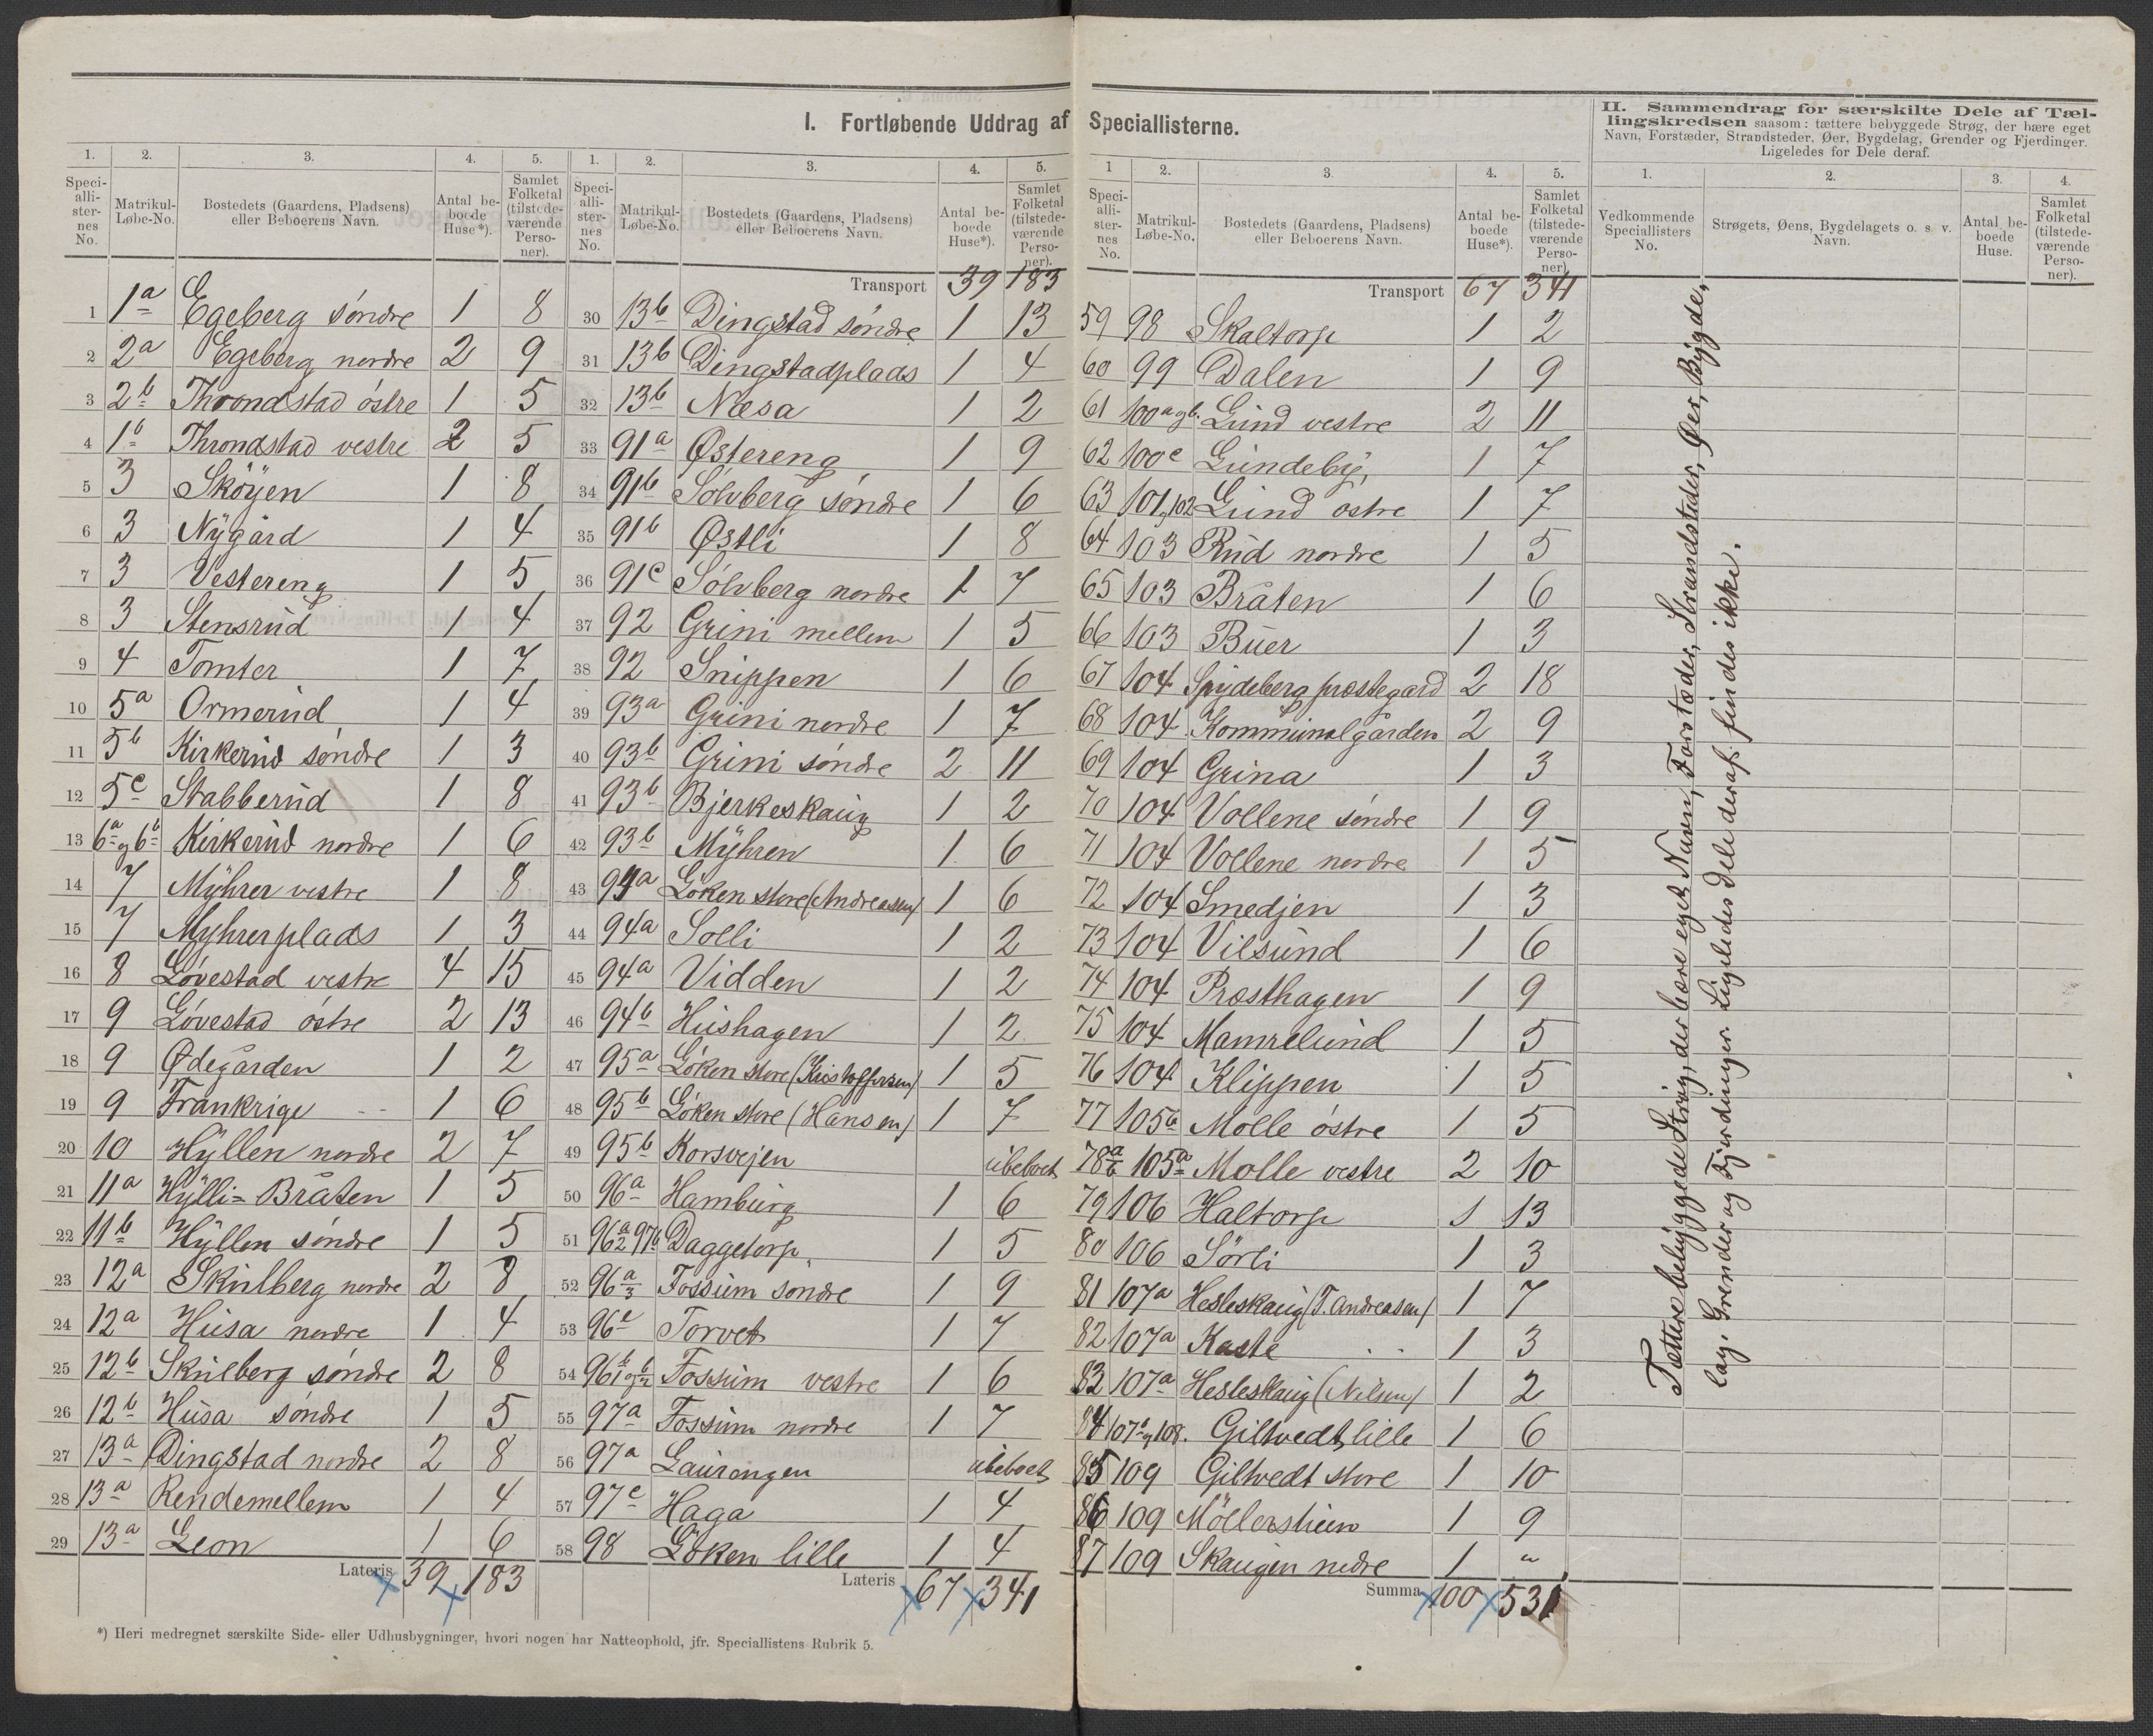 I. Fortløbende Uddrag af Speciallisterne.
1. 2. 3. 4. 5.
Speciallisternes No. Matrikul-Løbe-No. Bostedets (Gaardens, Pladsens) eller Beboerens Navn. Antal beboede Huse*). Samlet Folketal (tilstedeværende Personer).
1 1a Egeberg söndre 1 8
2 2a Egeberg nordre 2 9
3 2b Throndstad östre 1 5
4 1b Throndstad vestre 2 5
5 3 Sköyen 1 8
6 3 Nygård 1 4
7 3 Vestereng 1 5
8 3 Stensrud 1 4
9 4 Tomter 1 7
10 5a Ormerud 1 4
11 5b Kirkerud söndre 1 3
12 5c Stabberud 1 8
13 6a og 6b Kirkerud nordre 1 6
14 7 Myhrer vestre 1 8
15 7 Myhrerplads 1 3
16 8 Lövestad vestre 4 15
17 9 Lövestad östre 2 13
18 9 Ødegården 1 2
19 9 Frankrige 1 6
20 10 Hyllen nordre 2 7
21 11a Hylli=Bråten 1 5
22 11b Hyllen söndre 1 5
23 12a Skulberg nordre 2 8
24 12a Husa nordre 1 4
25 12b Skulberg söndre 2 8
26 12b Husa söndre 1 5
27 13a Dingstad nordre 2 8
28 13a Rendemellem 1 4
29 13a Leon 1 6
Lateris 39 183
*) Heri medregnet særskilte Side- eller Udhusbygninger, hvori nogen har Natteophold, jfr. Speciallistens Rubrik 5.
1. 2. 3. 4. 5.
Speciallisternes No. Matrikul-Løbe-No. Bostedets (Gaardens, Pladsens) eller Beboerens Navn. Antal beboede Huse*). Samlet Folketal (tilstedeværende Personer).
Transport 39 183
30 13b Dingstad söndre 1 13
31 13b Dingstadplads 1 4
32 13b Næsa 1 2
33 91a Østereng 1 9
34 91b Sölvberg söndre 1 6
35 91b Østli 1 8
36 91c Sölvberg nordre 1 7
37 92 Grini mellem 1 5
38 92 Snippen 1 6
39 93a Grini nordre 1 7
40 93b Grini söndre 2 11
41 93b Bjerkeskaug 1 2
42 93b Myhren 1 6
43 94a Löken store (Andreasen) 1 6
44 94a Solli 1 2
45 94a Vidden 1 2
46 94b Hushagen 1 2
47 95a Löken store (Kristoffersen) 1 5
48 95b Löken store (Hansen) 1 7
49 95b Korsvejen ubeboet
50 96a Hamburg 1 6
51 96a2 97b Daggetorp 1 5
52 96a3 Fossum söndre 1 9
53 96c Torvet 1 7
54 96b1 og b2 Fossum vestre 1 6
55 97a Fossum nordre 1 7
56 97a Laurengen ubeboet
57 97c Haga 1 4
58 98 Löken lille 1 4
Lateris 67 341
1 2. 3. 4. 5.
Speciallisternes No. Matrikul-Løbe-No. Bostedets (Gaardens, Pladsens) eller Beboerens Navn. Antal beboede Huse*). Samlet Folketal (tilstedeværende Personer).
Transport 67 341
59 98 Skaltorp 1 2
60 99 Dalen 1 9
61 100a og b. Lund vestre 2 11
62 100c Lundeby 1 7
63 101 og 102 Lund östre 1 7
64 103 Rud nordre 1 5
65 103 Bråten 1 6
66 103 Buer 1 3
67 104 Spydeberg præstegård 2 18
68 104 Kommunalgården 2 9
69 104 Grina 1 3
70 104 Vollene söndre 1 9
71 104 Vollene nordre 1 5
72 104 Smedjen 1 3
73 104 Vilsund 1 6
74 104 Præsthagen 1 9
75 104 Mamrelund 1 5
76 104 Klippen 1 5
77 105b Molle östre 1 5
78ab 105a Molle vestre 2 10
79 106 Haltorp 1 13
80 106 Sörli 1 3
81 107a Hesleskaug (T. Andreasen) 1 7
82 107a Kaste 1 3
83 107a Hesleskaug (Nilsen) 1 2
84 107b og 108. Giltvedt lille 1 6
85 109 Giltvedt store 1 10
86 109 Möllershuen 1 9
87 109 Skaugen nedre 1 "
Summa 100 531
II. Sammendrag for særskilte Dele af Tællingskredsen saasom: tættere bebyggede Strøg, der bære eget Navn, Forstæder, Strandsteder, Øer, Bygdelag, Grender og Fjerdinger. Ligeledes for Dele deraf.
1. 2. 3. 4.
Vedkommende Speciallisters No. Strøgets, Øens, Bygdelagets o. s. v. Navn. Antal beboede Huse. Samlet Folketal (tilstedeværende Personer).
Tættere bebyggede Strøg, der bære eget Navn, Forstæder, Strandsteder, Øer, Bygde,
lag, Grender og Fjerdinger. Ligeledes Dele deraf findes ikke.